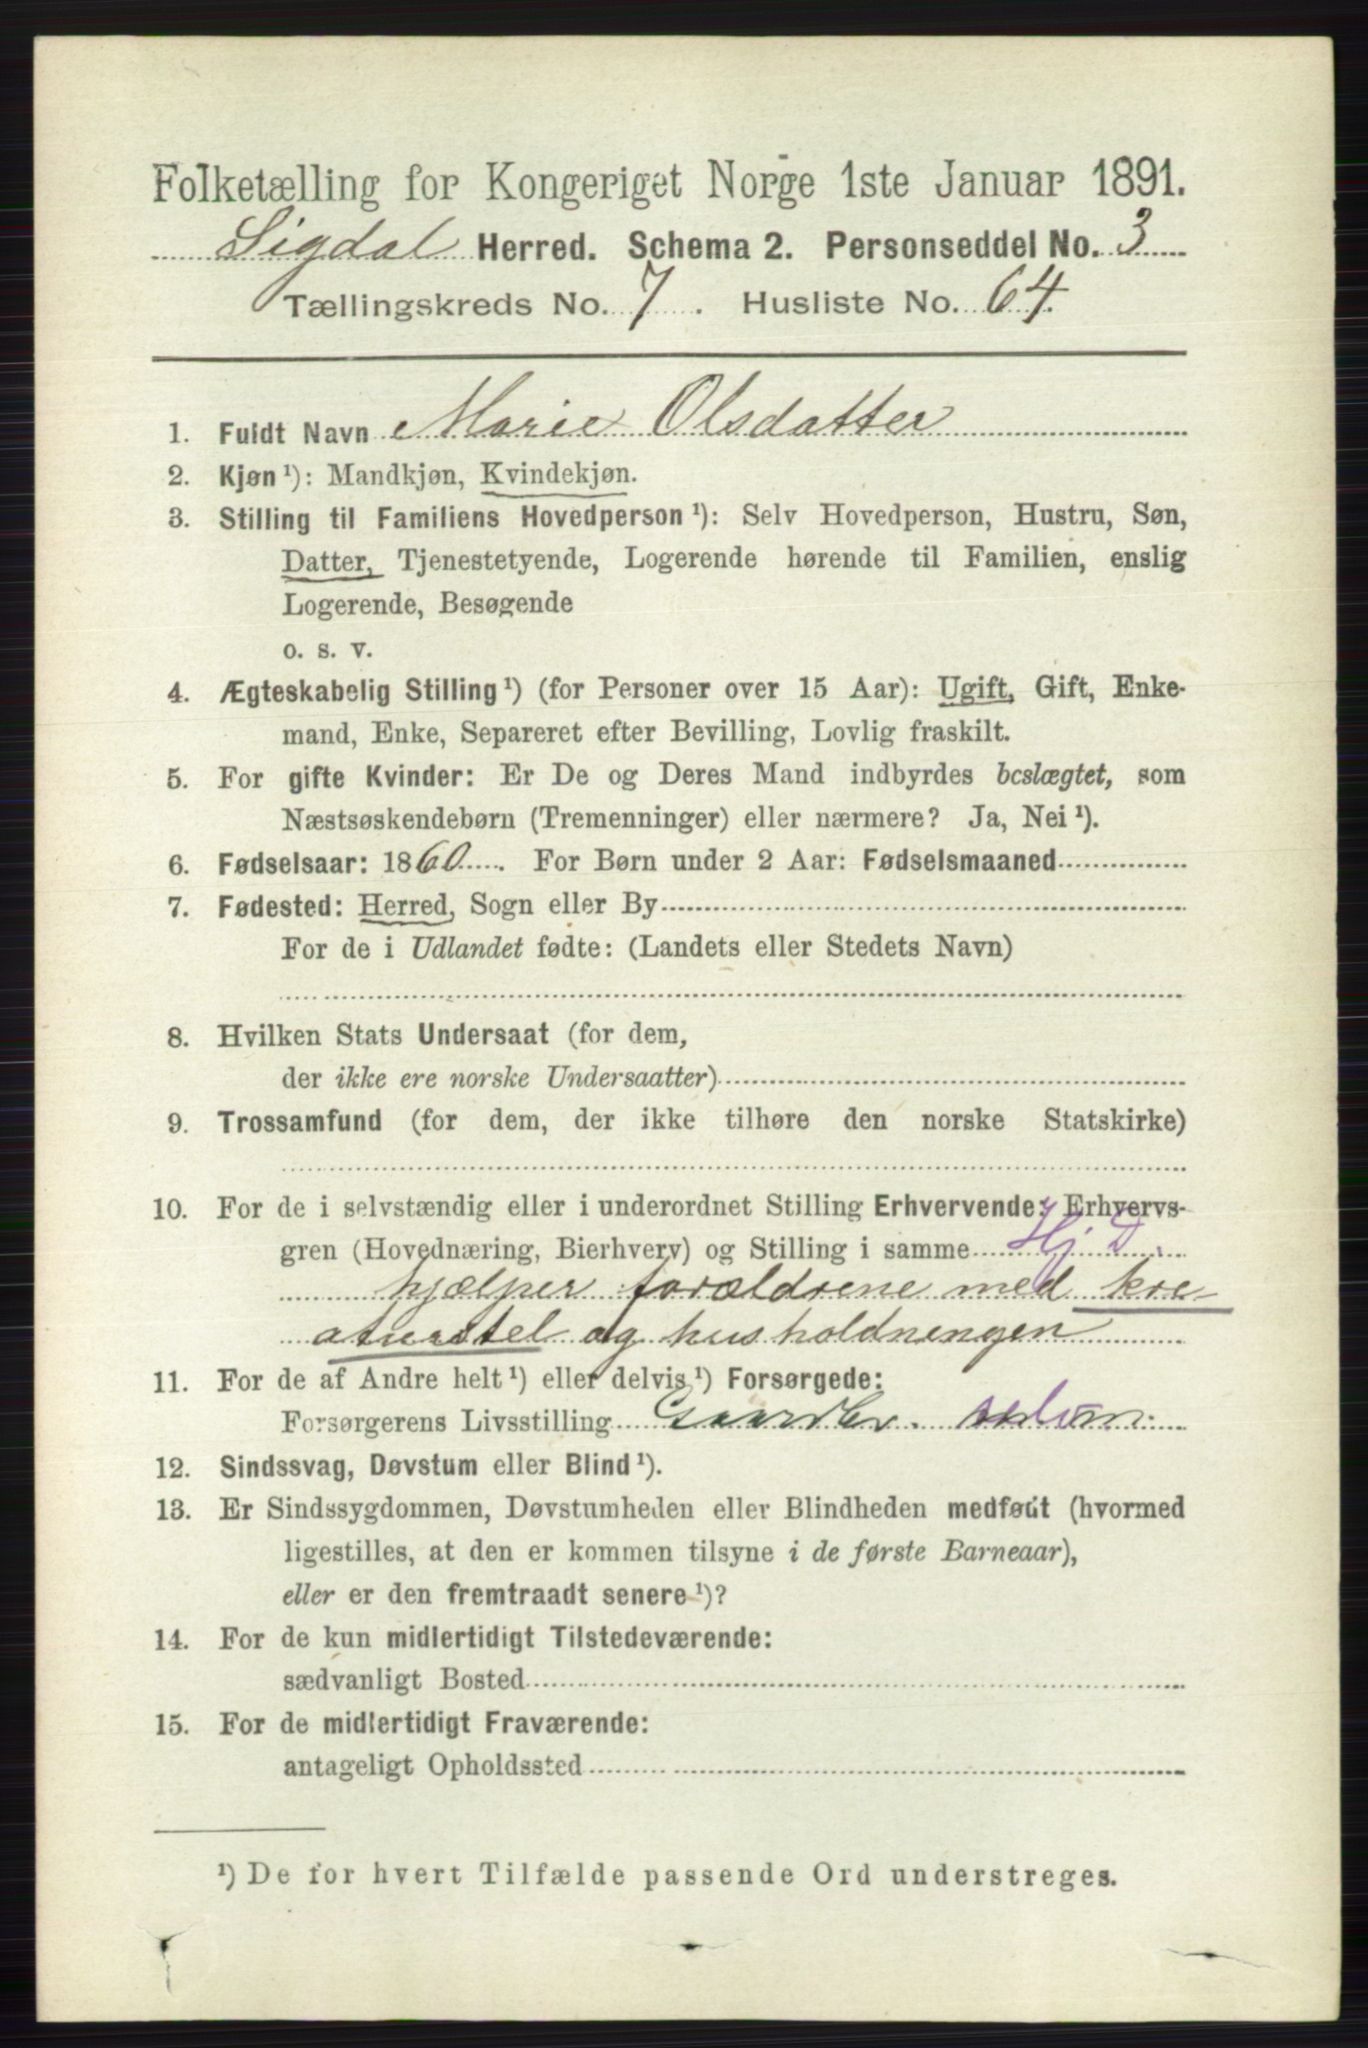 Folketælling for Kongeriget Norge 1ste Januar 1891.
Sigdal Herred. Schema 2. Personseddel No. 3
Tællingskreds No. 7. Husliste No. 64.
1. Fuldt Navn Marie Olsdatter
2. Kjøn ¹): Mandkjøn, Kvindekjøn.
3. Stilling til Familiens Hovedperson ¹): Selv Hovedperson, Hustru, Søn,
Datter, Tjenestetyende, Logerende hørende til Familien, enslig
Logerende, Besøgende
o. s. v.
4. Ægteskabelig Stilling ¹) (for Personer over 15 Aar): Ugift, Gift, Enke-
mand, Enke, Separeret efter Bevilling, Lovlig fraskilt.
5. For gifte Kvinder: Er De og Deres Mand indbyrdes beslægtet, som
Næstsøskendebørn (Tremenninger) eller nærmere? Ja, Nei ¹).
6. Fødselsaar: 1860. For Børn under 2 Aar: Fødselsmaaned
7. Fødested: Herred, Sogn eller By
For de i Udlandet fødte: (Landets eller Stedets Navn)
8. Hvilken Stats Undersaat (for dem,
der ikke ere norske Undersaatter)
9. Trossamfund (for dem, der ikke tilhøre den norske Statskirke)
10. For de i selvstændig eller i underordnet Stilling Erhvervende: Erhvervs-
gren (Hovednæring, Bierhverv) og Stilling i samme Hj D.
hjælper forældrene med kre-
aturstel og husholdningen
11. For de af Andre helt ¹) eller delvis ¹) Forsørgede:
Forsørgerens Livsstilling Gaardbr.
12. Sindssvag, Døvstum eller Blind ¹).
13. Er Sindssygdommen, Døvstumheden eller Blindheden medfødt (hvormed
ligestilles, at den er kommen tilsyne i de første Barneaar),
eller er den fremtraadt senere ¹)?
14. For de kun midlertidigt Tilstedeværende:
sædvanligt Bosted
15. For de midlertidigt Fraværende:
antageligt Opholdssted
¹) De for hvert Tilfælde passende Ord understreges.